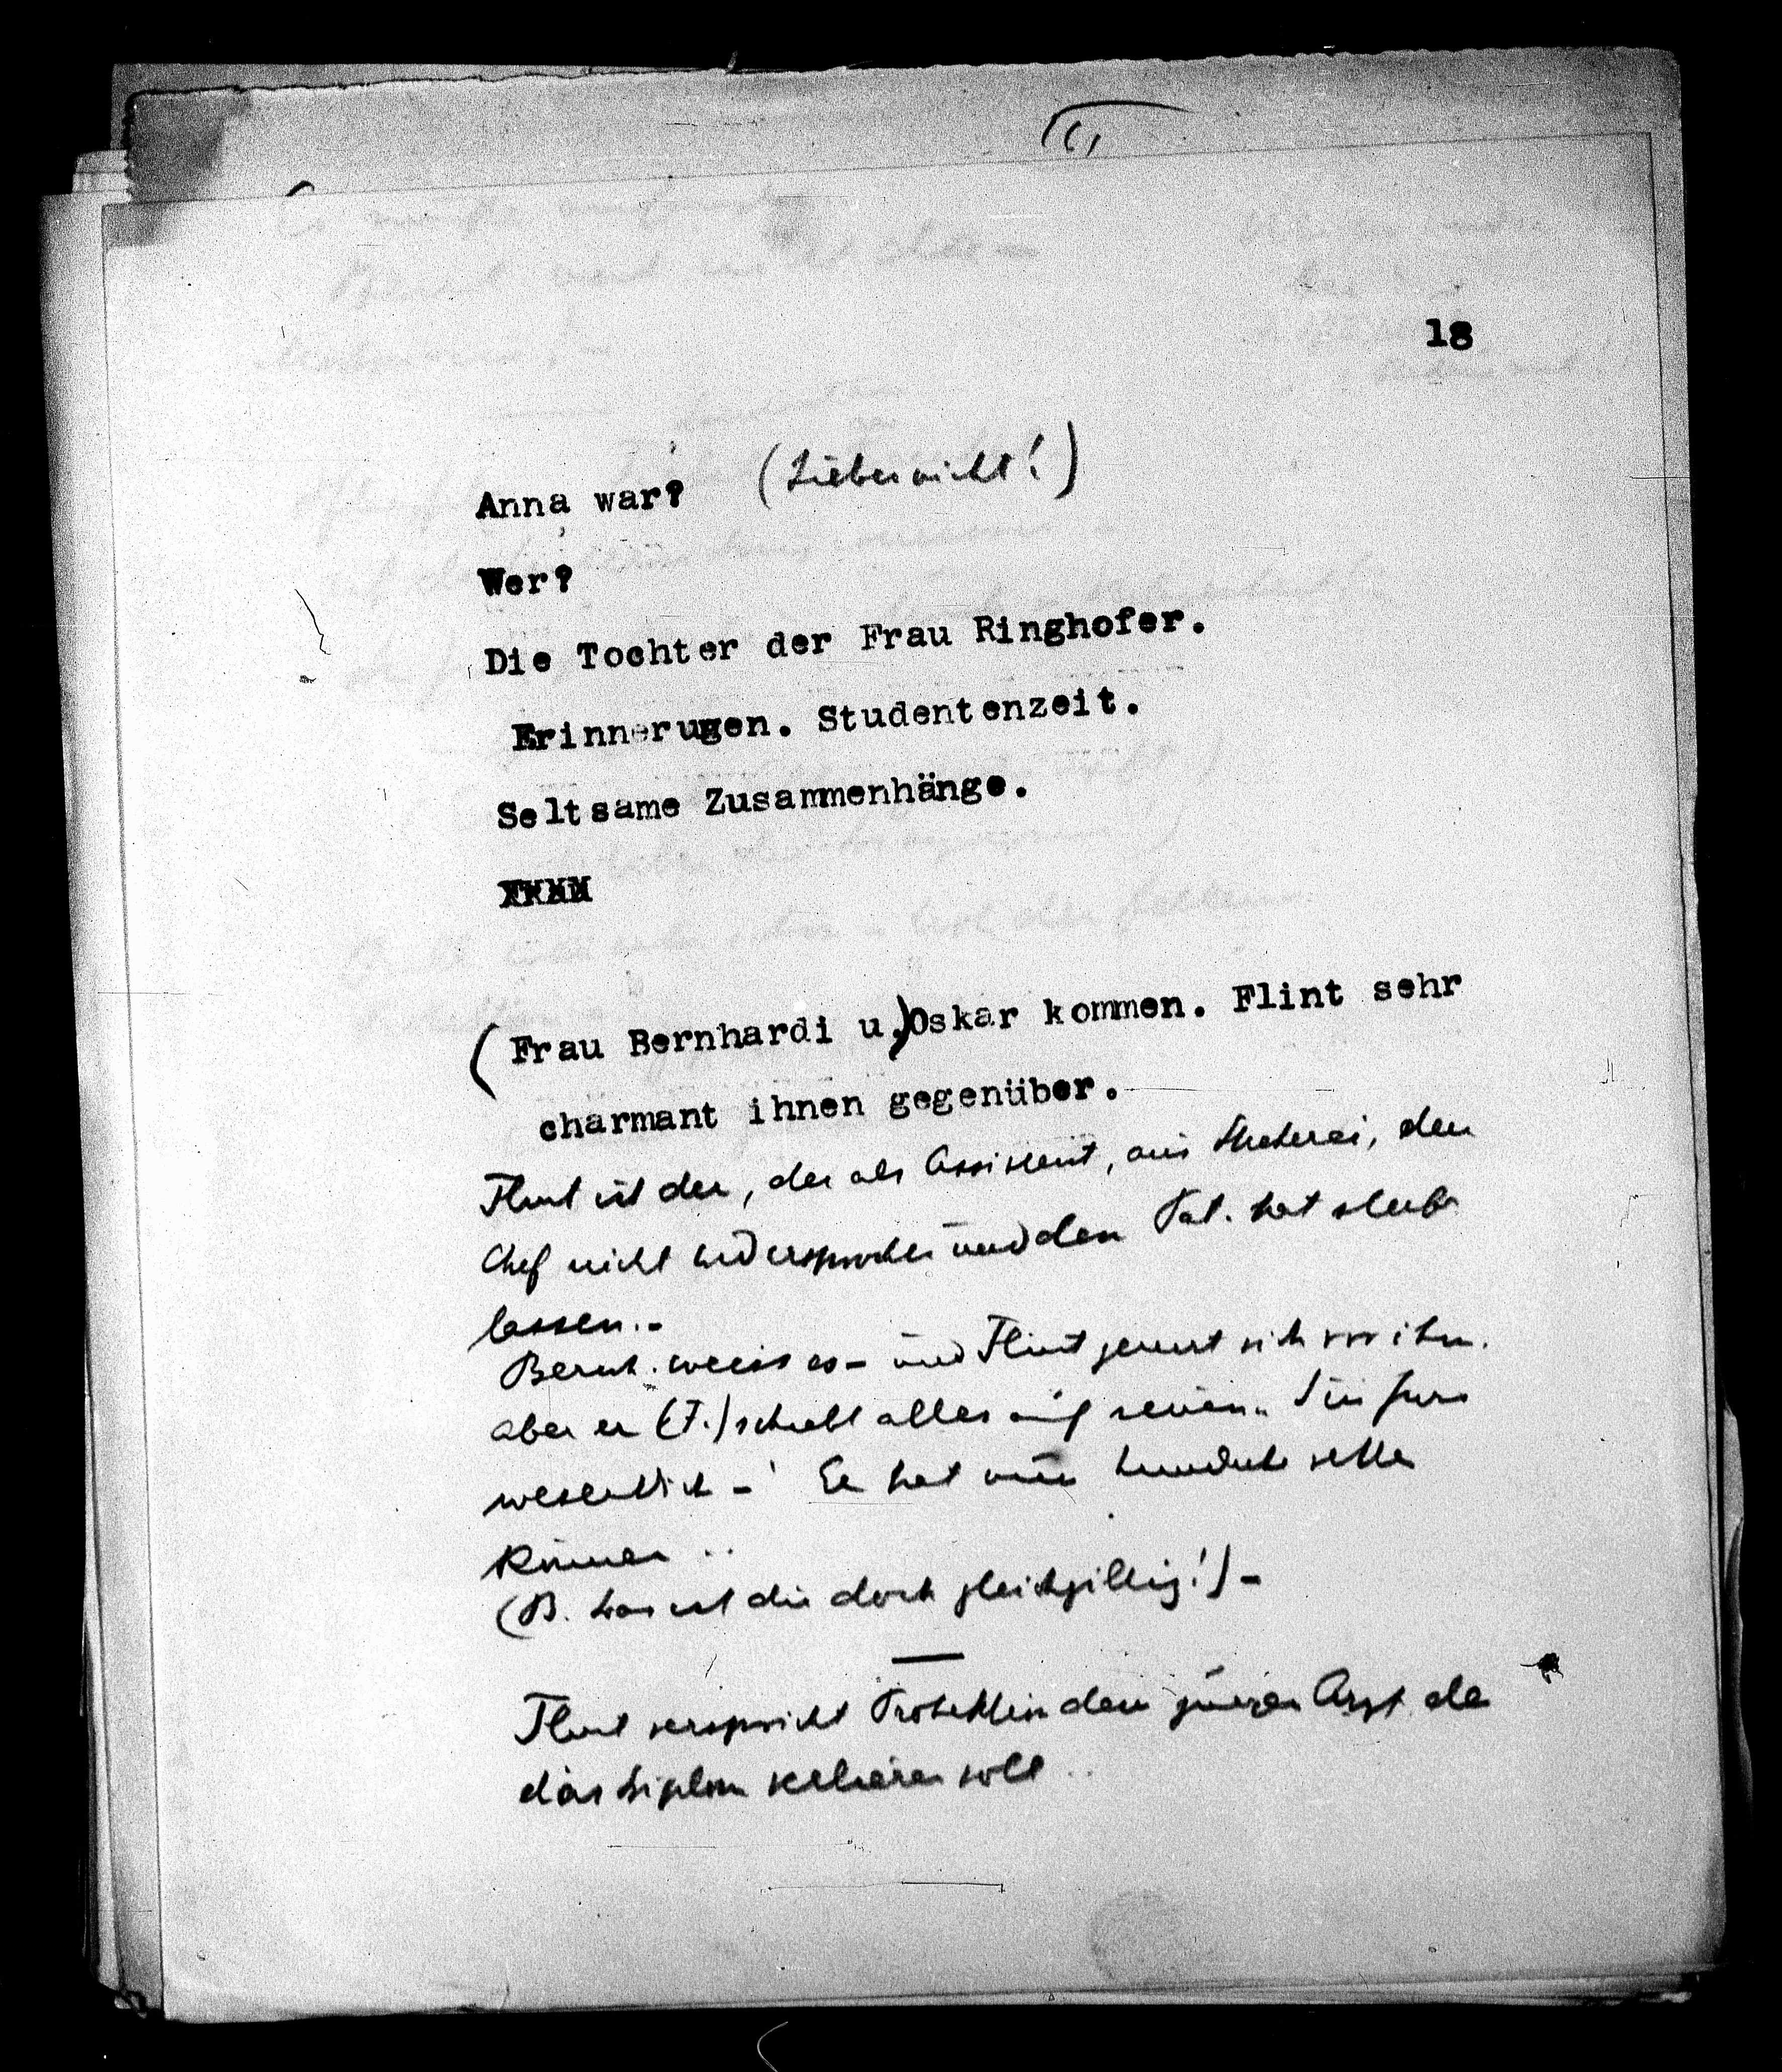 18
Anna war? (Lieber nicht!)
Wer?
Die Tochter der Frau Ringhofer.
Erinnerugen. Studentenzeit.
Seltsame Zusammenhänge.
(Frau Bernhardi u.) Oskar kommen. Flint sehr
charmant ihnen gegenüber.
Flint ist der, der als Assistent, aus Streberei, dem
Chef nicht widersprochen und den Pat. hat sterben
lassen.-
Bernh. weiss es - und Flint genirt sich vor ihm.
aber er (F.) schiebt alles auf seinen Sinn fürs
wesentliche -! Er hat nun hunderte retten
können ..
(B. Was ist dir doch gleichgiltig!) -
Flint verspricht Protektion dem jungen Arzt, der
das Diplom verlieren soll ..